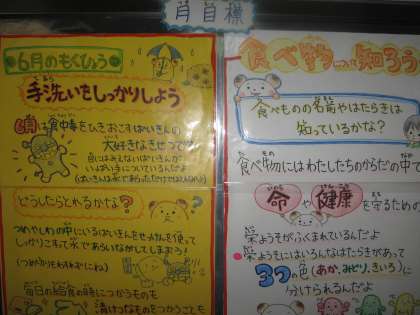 月目標
6月のもくひょう
手洗いをしっかりしよう
6月は食中毒をひきおこすばいきんの
大好きなきせつです
目にはみえないばいきんが
いっぱい手についているんだよ
どうしたらとれるかな?
つめやしわの中にいるばいきんをせっけんを使って
しっかりこすって水であらいながしてしまおう!
(つめきりもわすれずにね)
毎日の給食の時につかうものも
清けつなものをつかうことも
食べ物について知ろう
食べものの名前やはたらきは
知っているかな?
食べ物にはわたしたちのからだの中で
命や健康を守るための
栄ようそがふくまれているんだよ
栄ようそにはいろんなはたらきがあって
3つの色(あか、みどり、きいろ)に
分けられるんだよ